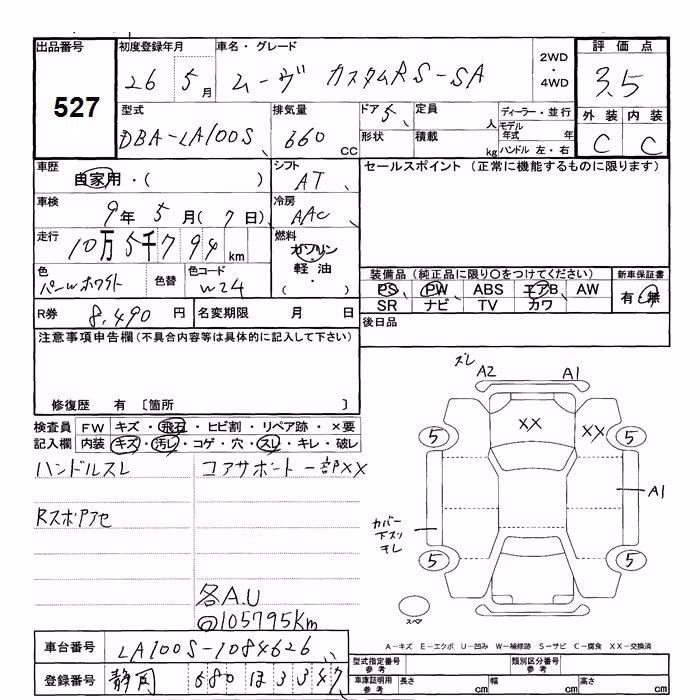 出品番号 初度登録年月 車名・グレード 2WD・4WD 評価点
527 26 5月 ムーヴ カスタムRS-SA 3.5
型式 排気量 ドア 定員 ディーラー・並行 外装 内装
DBA-LA100S 660 CC 5 人 モデル年式 年 C C
形状 積載 kg ハンドル 左・右
車歴 自家用・( ) シフト AT セールスポイント (正常に機能するものに限ります)
車検 9年5月(7日) 冷房 AAC
走行 10万5千794km 燃料 ガソリン 軽油・( )
色 パールホワイト 色替 色コード W24
装備品 (純正品に限り○をつけてください) 新車保証書
PS PW ABS エアB AW 有・無
SR ナビ TV カワ
R券 8,490円 名変期限 月 日 後日品
注意事項申告欄(不具合内容等は具体的に記入して下さい)
修復歴 有 〔箇所 〕
検査員 FW キズ・飛石・ヒビ割・リペア跡・×要
記入欄 内装 キズ・汚レ・コゲ・穴・スレ・キレ・破レ
ハンドルスレ コアサポート一部XX
Rスポアセ
各A.U
@105795Km
ズレ A2 A1
XX XX
5 5
A1
カバー
下スリ
キレ
5 5
スペア
A-キズ E-エクボ U-凹み W-補修跡 S-サビ C-腐食 XX-交換済
車台番号 LA100S-1084626 型式指定番号 参考 類別区分番号 参考
登録番号 静岡 580 ほ 3347 車庫証明用 参考 長さ cm 幅 cm 高さ cm